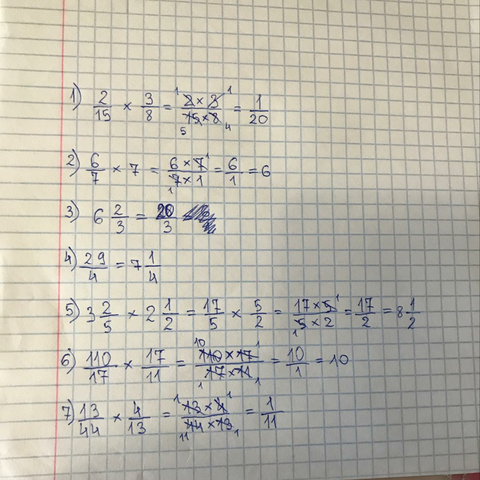 1) 2/15 × 3/8 = 2 × 3/15 × 8 = 1/20
2) 6/7 × 7 = 6 × 7/7 × 1 = 6/1 = 6
3) 6 2/3 = 20/3
4) 29/4 = 7 1/4
5) 3 2/5 × 2 1/2 = 17/5 × 5/2 = 17 × 5/5 × 2 = 17/2 = 8 1/2
6) 110/17 × 17/11 = 110 × 17/17 × 11 = 10/1 = 10
7) 13/44 × 4/13 = 13 × 4/44 × 13 = 1/11